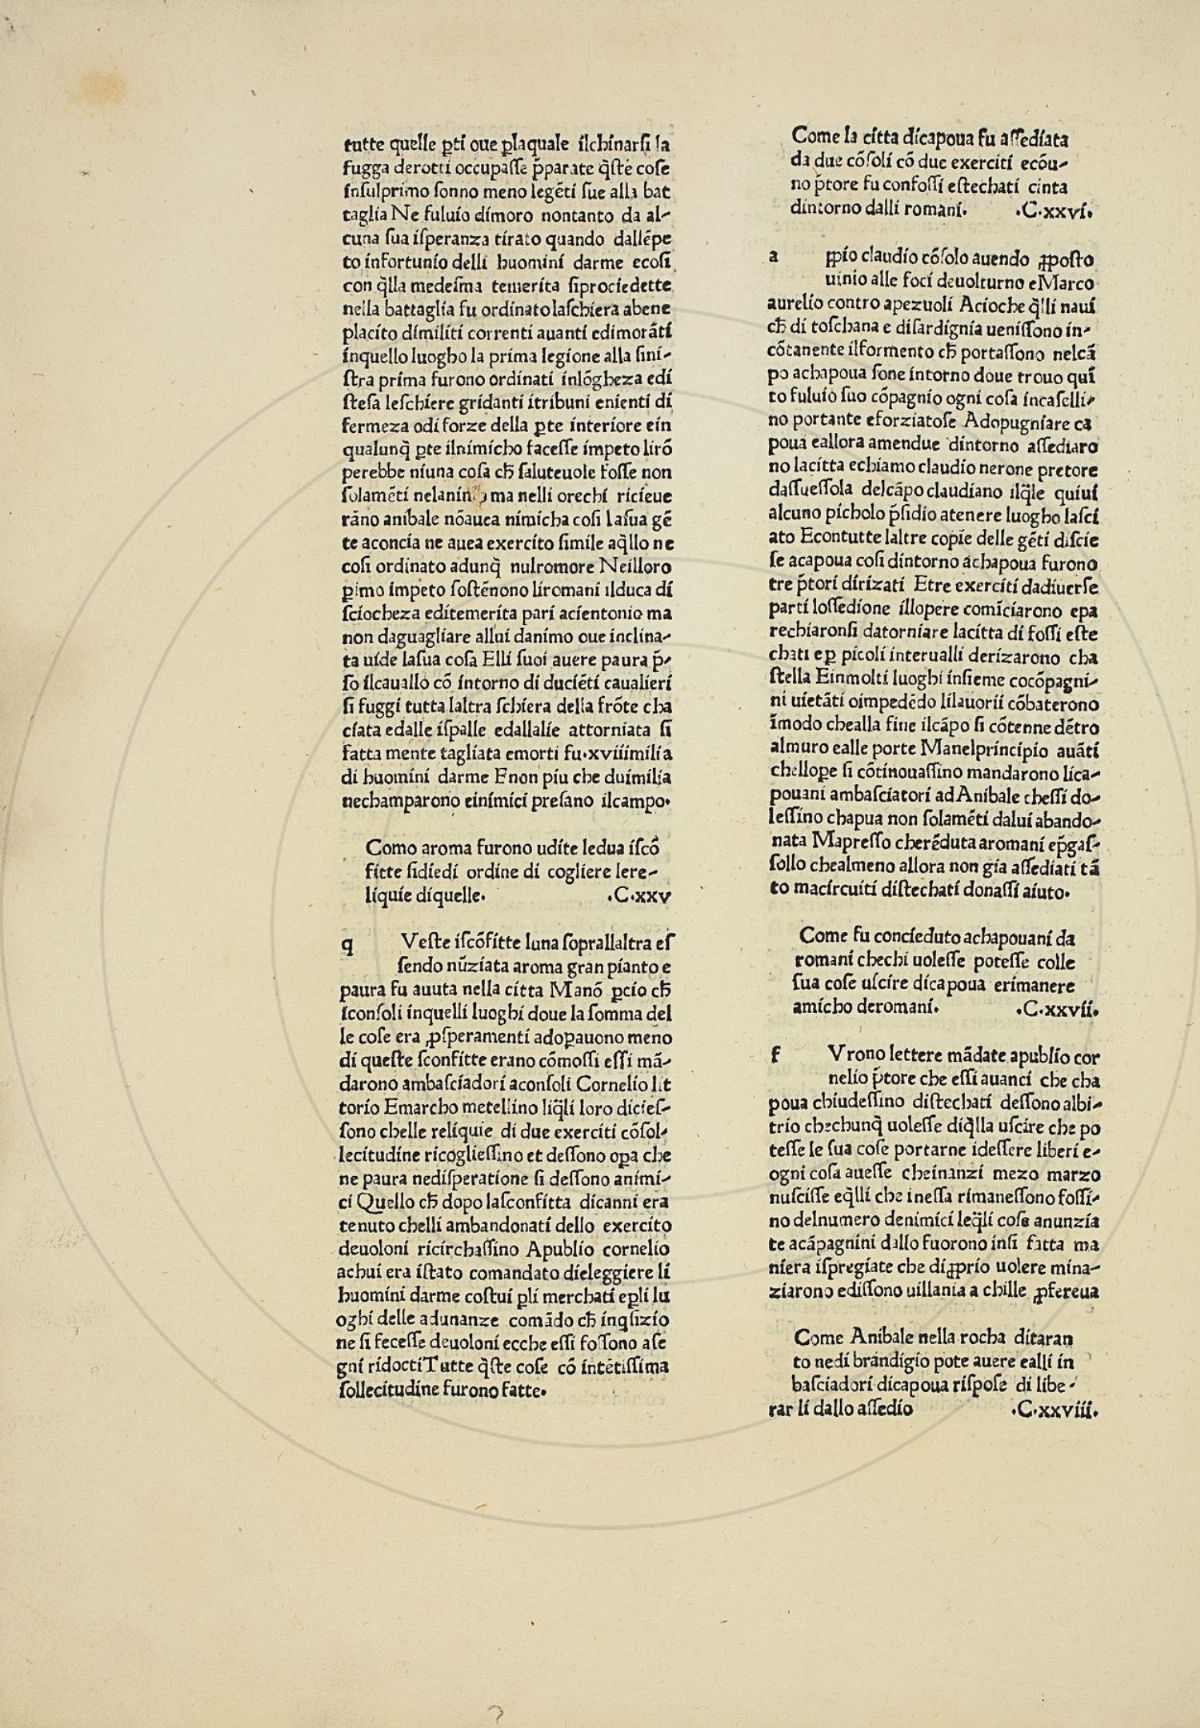 tutte quelle ꝑti oue ꝑlaquale ilchinarsi la
fugga derotti occupasse p̄parate q̄ste cose
insulprimo sonno meno legēti sue alla bat
taglia Ne fuluio dimoro nontanto da al-
cuna sua isperanza tirato quando dallēpe
to infortunio delli huomini darme ecosi
con q̄lla medesma temerita siprociedette
nella battaglia fu ordinato laschiera abene
placito dimiliti correnti auanti edimorāti
inquello luogho la prima legione alla sini-
stra prima furono ordinati inlōgheza edi
stesa leschiere gridanti itribuni enienti di
fermeza odi forze della ꝑte interiore ein
qualunq̄ ꝑte ilnimicho facesse impeto lirō
perebbe niuna cosa ch̄ saluteuole fosse non
solamēti ma nelli orechi ricieue
rāno anibale nōauea nimicha cosi lasua gē
te aconcia ne auea exercito simile aq̄llo ne
cosi ordinato adunq̄ nulromore Neilloro
ꝑimo impeto sostēnono liromani ilduca di
sciocheza editemerita pari acientonio ma
non daguagliare allui danimo oue inclina-
ta uide lasua cosa Elli suoi auere paura p̄-
so ilcauallo cō intorno di duciēti caualieri
si fuggi tutta laltra schiera della frōte cha
ciata edalle ispalle edallalie attorniata si
fatta mente tagliata emorti fu·xviiimilia
di huomini darme Enon piu che duimilia
nechamparono einimici presano ilcampo·
Como aroma furono udite ledua iscō
fitte sidiedi ordine di cogliere lere-
liquie diquelle· ·C·xxv
q Veste iscōfitte luna soprallaltra es
sendo nūziata aroma gran pianto e
paura fu auuta nella citta Manō ꝑcio ch̄
iconsoli inquelli luoghi doue la somma del
le cose era ꝓsperamenti adoꝑauono meno
di queste sconfitte erano cōmossi essi mā-
darono ambasciadori aconsoli Cornelio lit
torio Emarcho metellino liq̄li loro dicies-
sono chelle reliquie di due exerciti cōsol-
lecitudine ricogliessino et dessono oꝑa che
ne paura nedisperatione si dessono animi-
ci Quello ch̄ dopo lasconfitta dicanni era
tenuto chelli ambandonati dello exercito
deuoloni ricirchassino Apublio cornelio
achui era istato comandato dieleggiere li
huomini darme costui ꝑli merchati eꝑli lu
oghi delle adunanze comādo ch̄ inq̄sizio
ne si fecesse deuoloni ecche essi fossono ase
gni ridottiTutte q̄ste cose cō intētissima
sollecitudine furono fatte·
Come la citta dicapoua fu assediata
da due cōsoli cō due exerciti ecōu-
no p̄tore fu confossi estechati cinta
dintorno dalli romani· ·C·xxvi·
a ꝑpio claudio cōsolo auendo ꝓposto
uinio alle foci deuolturno eMarco
aurelio contro apezuoli Acioche q̄lli naui
ch̄ di toschana e disardignia uenissono in-
cōtanente ilformento ch̄ portassono nelcā
po achapoua sone intorno doue trouo qui
to fuluio suo cōpagnio ogni cosa incaselli-
no portante eforziatose Adopugniare ca
poua eallora amendue dintorno assediaro
no lacitta echiamo claudio nerone pretore
dassuessola delcāpo claudiano ilq̄le quiui
alcuno picholo p̄sidio atenere luogho lasci
ato Econtutte laltre copie delle gēti discie
se acapoua cosi dintorno achapoua furono
tre p̄tori dirizati Etre exerciti dadiuerse
parti lossedione illopere comīciarono epa
rechiaronsi datorniare lacitta di fossi este
chati eꝑ picoli interualli derizarono cha
stella Einmolti luoghi insieme cocōpagni-
ni uietāti oimpedēdo lilauorii cōbaterono
īmodo chealla fine ilcāpo si cōtenne dētro
almuro ealle porte Manelprincipio auāti
chelloꝑe si cōtinouassino mandarono lica-
pouani ambasciatori ad Anibale chessi do-
lessino chapua non solamēti dalui abando-
nata Mapresso cherēduta aromani eꝑgas-
sollo chealmeno allora non gia assediati tā
to macircuiti distechati donassi aiuto·
Come fu concieduto achapouani da
romani chechi uolesse potesse colle
sua cose uscire dicapoua erimanere
amicho deromani· ·C·xxvii·
f Vrono lettere mādate apublio cor
nelio p̄tore che essi auanci che cha
poua chiudessino distechati dessono albi-
trio chechunq̄ uolesse diq̄lla uscire che po
tesse le sua cose portarne idessere liberi e-
ogni cosa auesse cheinanzi mezo marzo
nuscisse eq̄lli che inessa rimanessono fossi-
no delnumero denimici leq̄li cose anunzia
te acāpagnini dallo fuorono insi fatta ma
niera ispregiate che diꝓprio uolere mina-
ziarono edissono uillania a chille ꝓfereua
Come Anibale nella rocha ditaran
to nedi brandigio pote auere ealli in
basciadori dicapoua rispose di libe-
rar li dallo assedio ·C·xxviii·